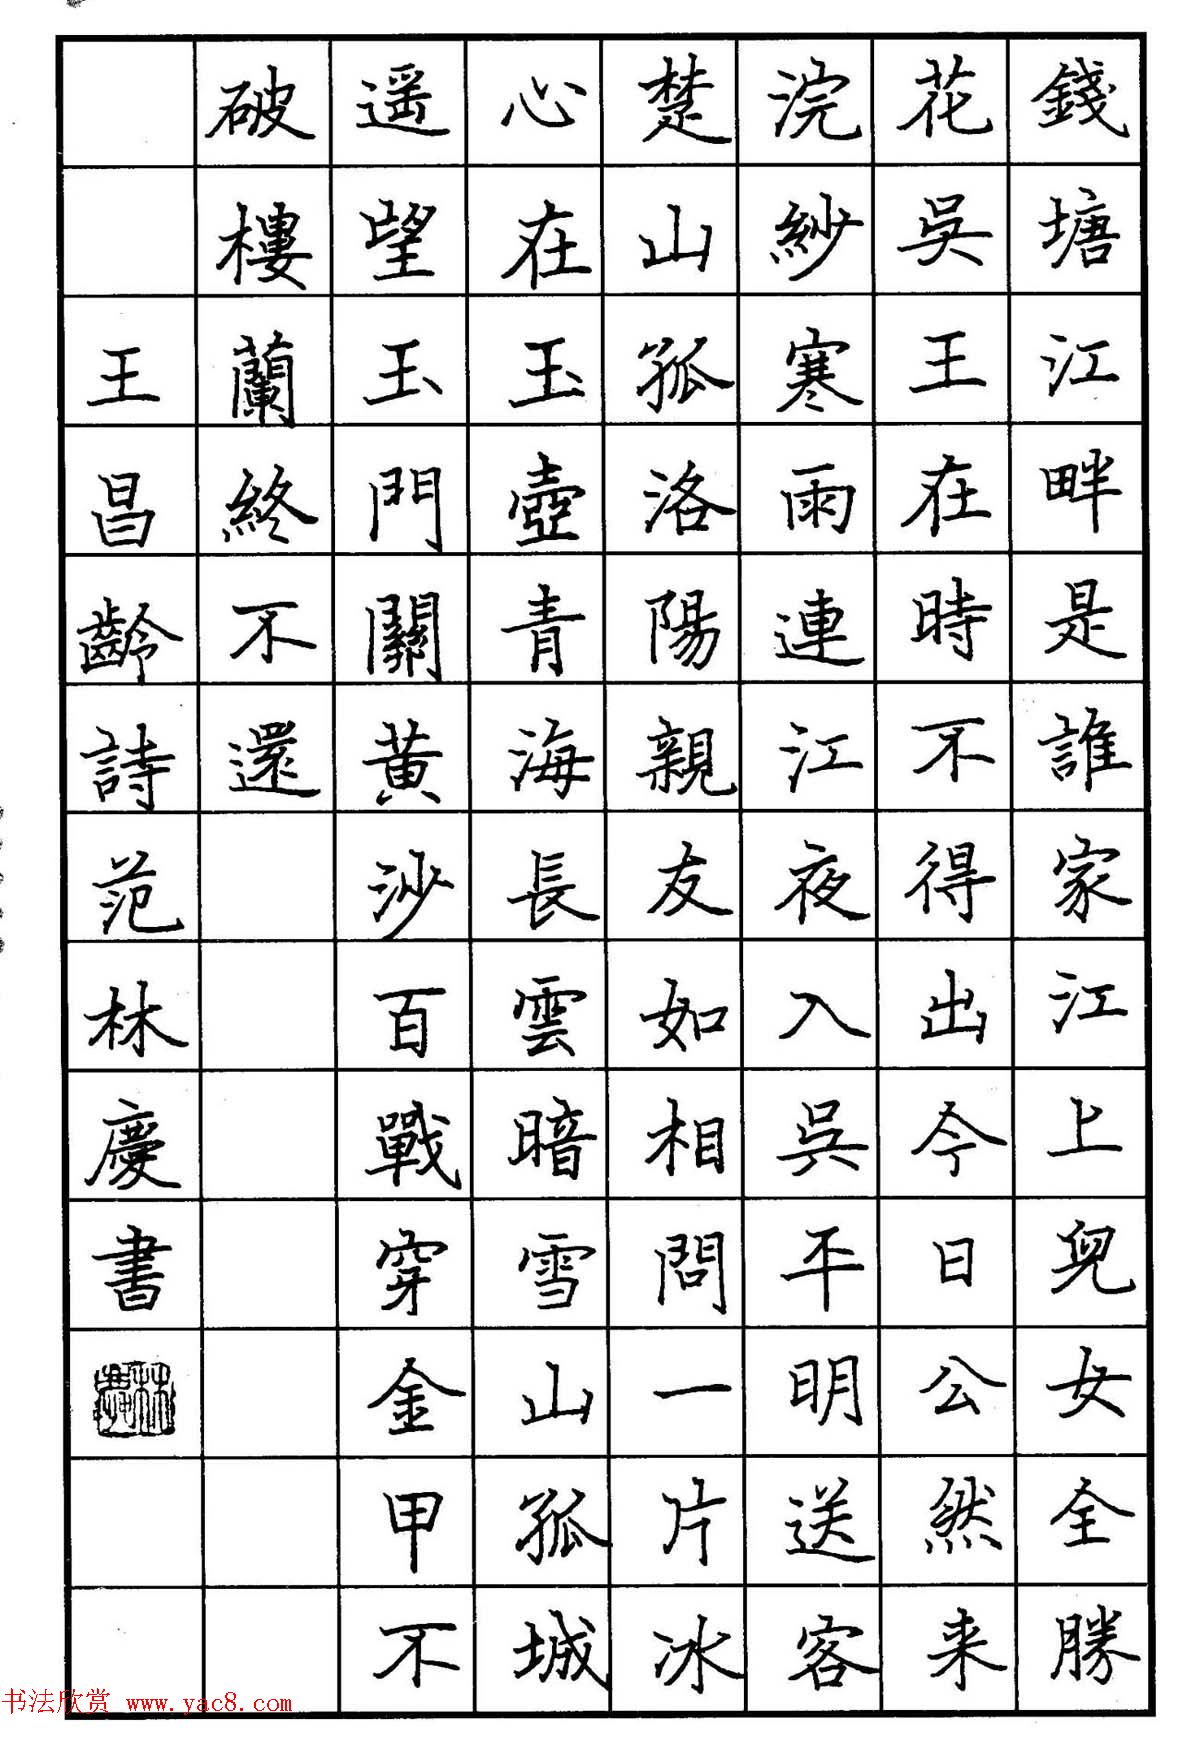 錢塘江畔是誰家江上兒女全勝
花吳王在時不得出今日公然来
浣紗寒雨連江夜入吳平明送客
楚山孤洛陽親友如相問一片冰
心在玉壺青海長雲暗雪山孤城
遥望玉門關黄沙百戰穿金甲不
破樓蘭終不還
王昌齡詩范林慶書
书法欣赏 www.yac8.com